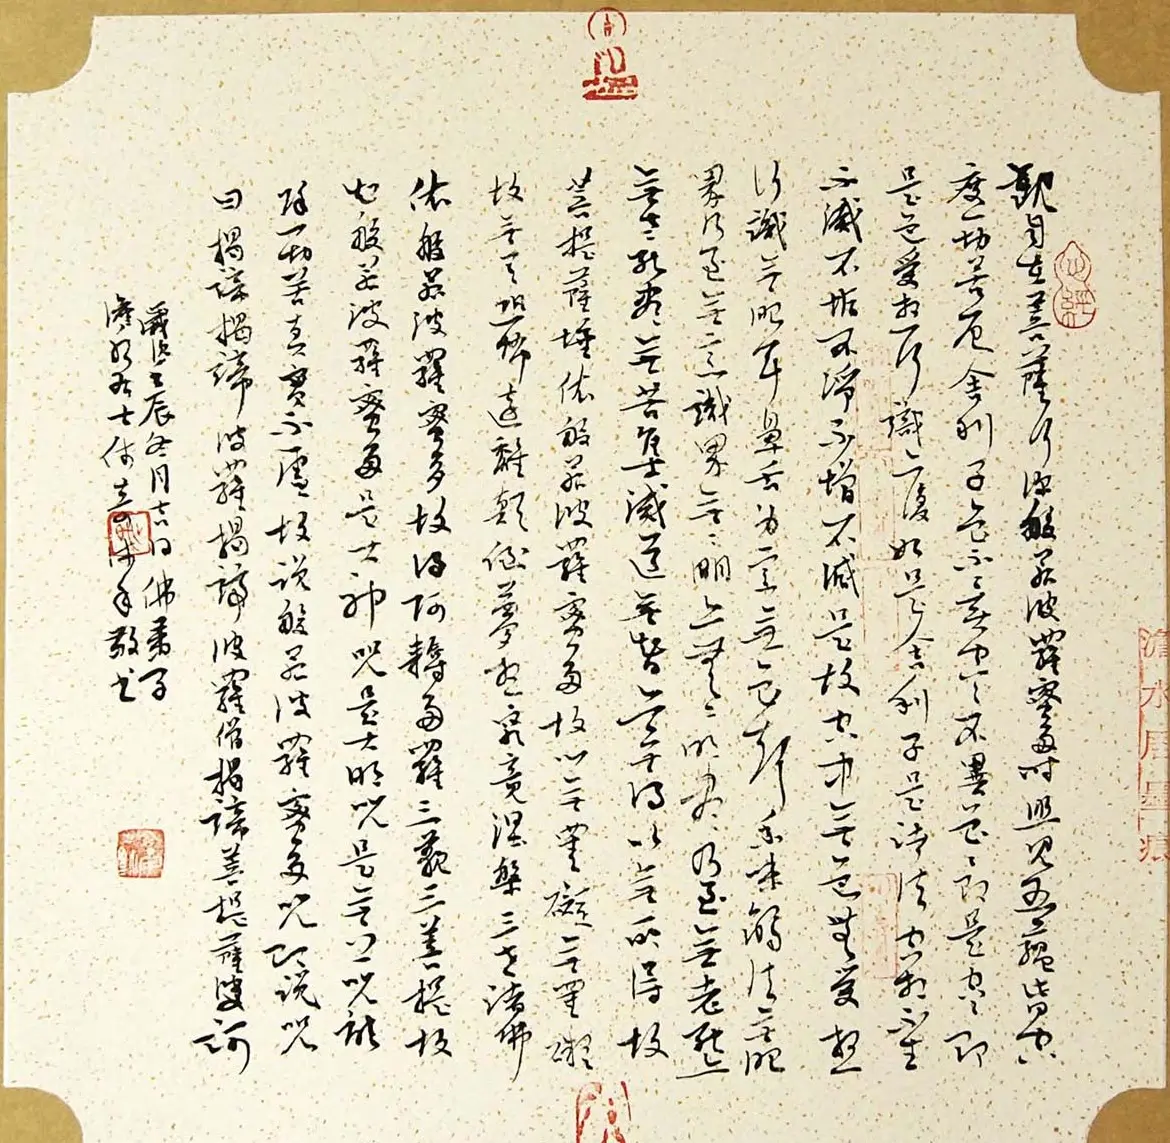 觀自在菩薩行深般若波羅蜜多時照見五蘊皆空
度一切苦厄舍利子色不異空々不異色々即是空々即
是色受想行識亦復如是舍利子是諸法空相不生
不滅不垢不淨不增不減是故空中無色無受想
行識無眼耳鼻舌身意無色聲香味觸法無眼
界乃至無意識界無々明亦無々明盡乃至無老死亦
無老死盡無苦集滅道無智亦無得以無所得故
菩提薩埵依般若波羅蜜多故心無罣礙無罣礙
故無有恐怖遠離顛倒夢想究竟涅槃三世諸佛
依般若波羅蜜多故得阿耨多羅三藐三菩提故
知般若波羅蜜多是大神咒是大明咒是無上咒能
除一切苦真實不虛故說般若波羅蜜多咒即說咒
曰揭諦揭諦波羅揭諦波羅僧揭諦菩提薩婆訶
歲次壬辰冬月吉日佛弟子
澹水居士敬書
澹水居墨痕